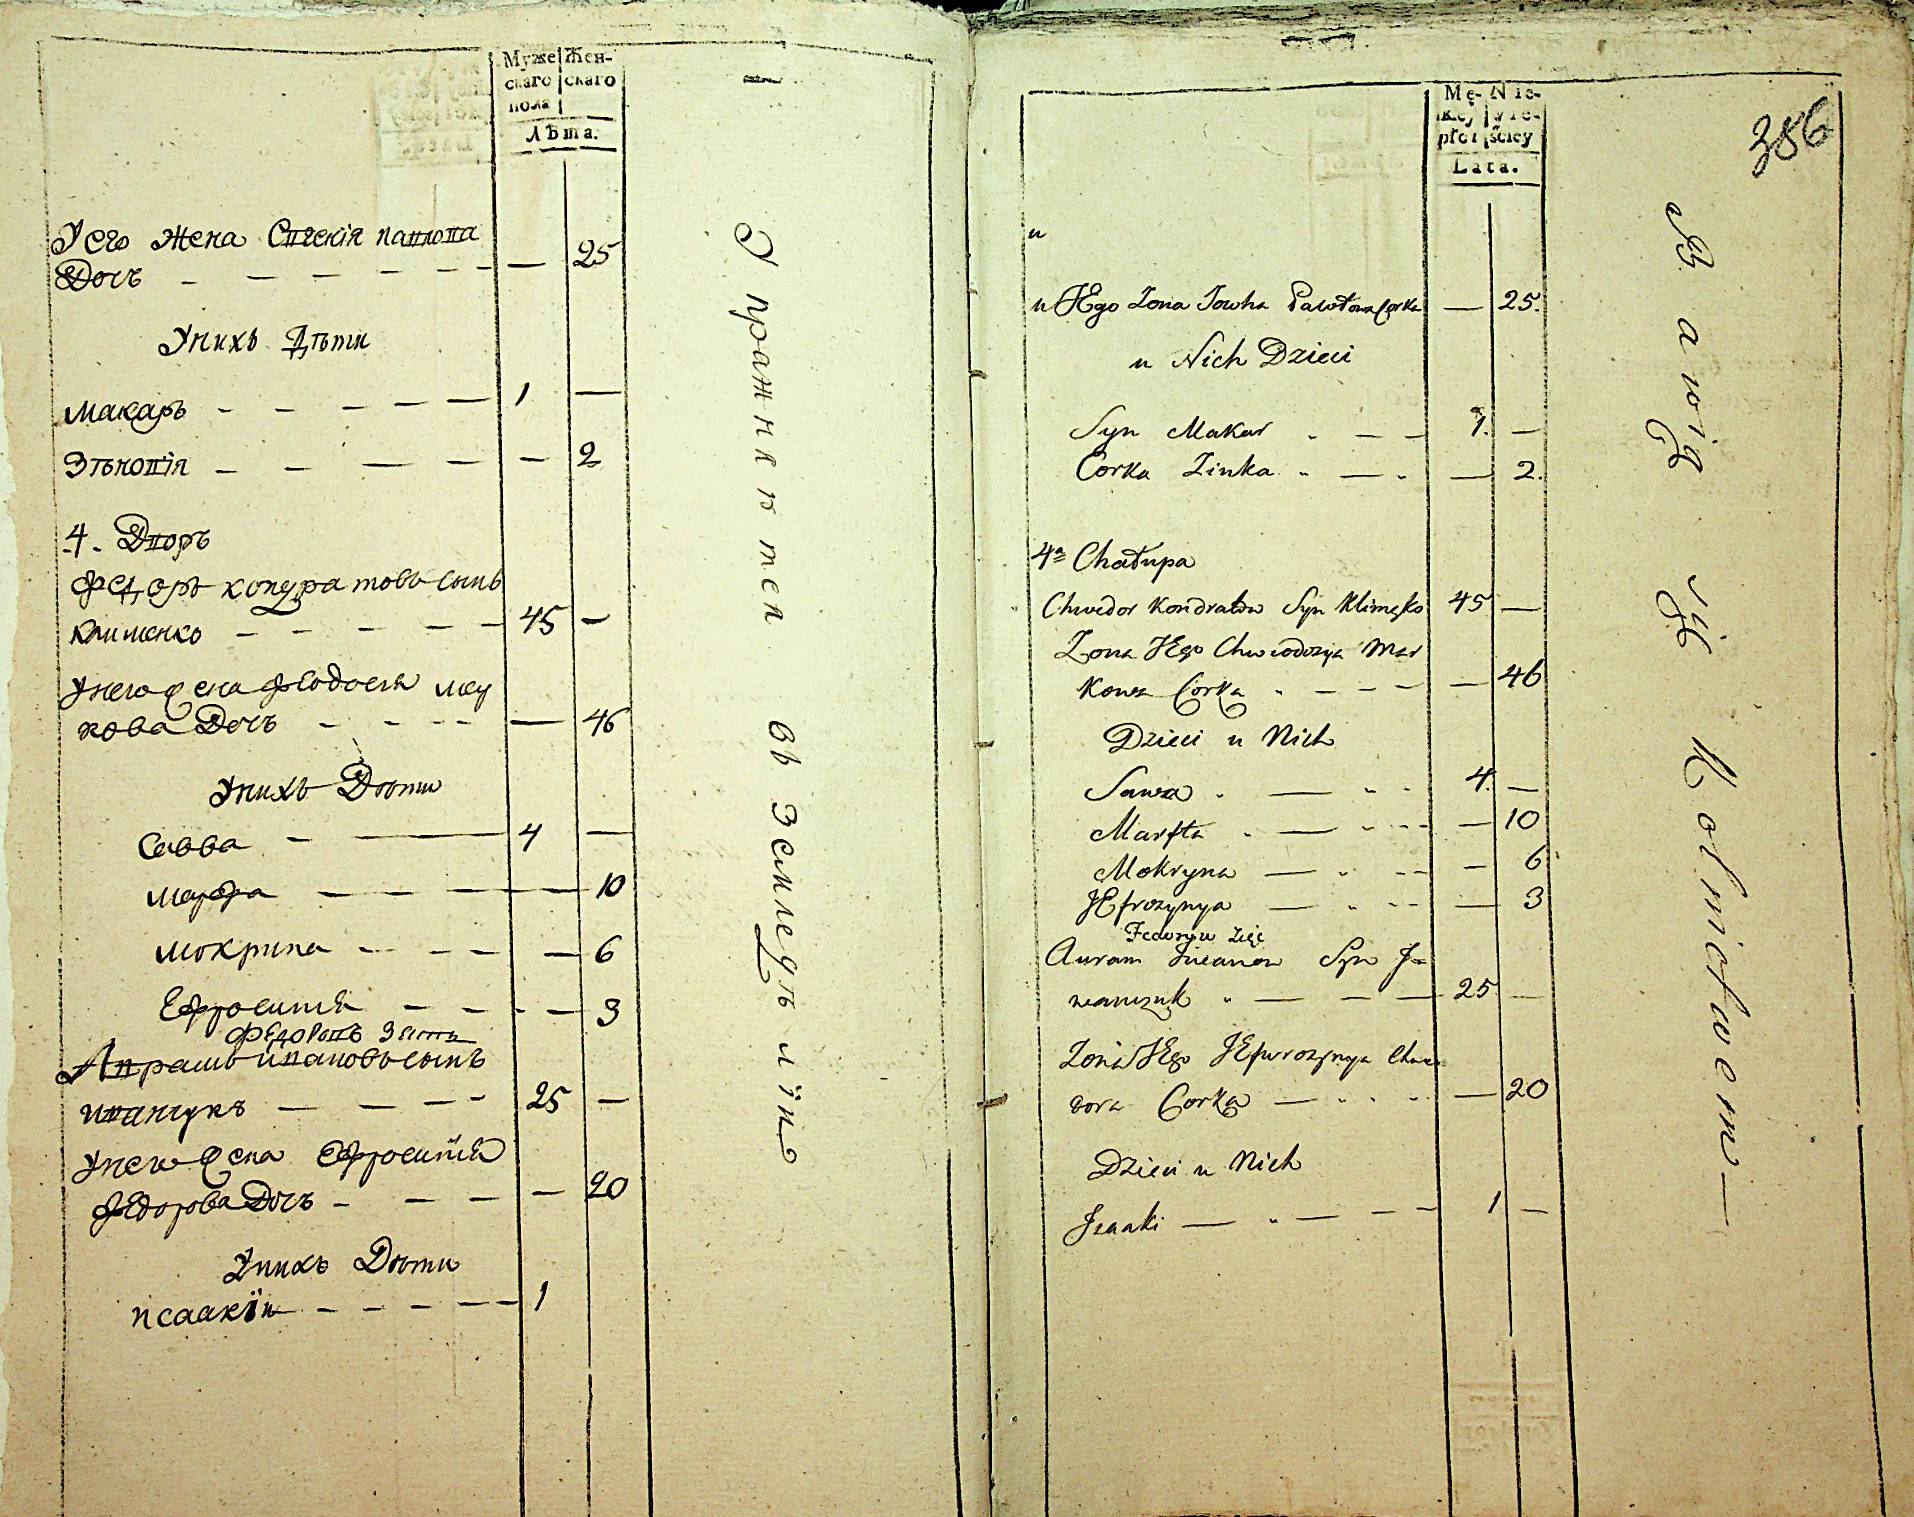 Муже Жен-
скаго скаго
пола
Лѣта.
У его жена Евгенія павлова
Дочь - - - - - — 25
Унихъ Дѣти
Макаръ - - - - — 1 —
Зѣновія - - - - — 2
4. Дворъ
Федоръ кондратовъ сынъ
Клименко - - - - - 45 —
Унего жена Феодосія мар
кова Дочь - - - - — 46
Унихъ Дѣти
Савва - — 4 —
марфа - - - — 10
мокрина - - - - — 6
Ефросинія - - - - — 3
Федоровъ Зять
Аврамъ ивановъ сынъ
иванчукъ - - - - 25 —
Унего жена Ефросинія
Федорова Дочь - - - - — 20
Унихъ Дѣти
исаакіи - - - - - 1
Упражняется въ земледѣліи
386
Mę- Nie-
skiej wie-
płci ściey
Lata.
u
u JEgo Żona Jowha Pawłowa Corka — 25.
u Nich Dzieci
Syn Makar - - - 1. —
Corka Zinka - - - — 2.
4a Chałupa
Chwedor Kondratow Syn Klimęko 45 —
Zona JEgo Chwiodozya Mar
kowa Corka - - - - — 46
Dzieci u Nich
Sawa - — - - 4. —
Marfta - — - - - — 10
Mokryna — - - - — 6
JEfrozynya — - - - — 3
Fedorŷw Zięć
Auram Jwanow Syn J=
wanczuk - — - — 25 —
Zona JEgo JEfwrozynya Chwe
dora Corka — - - - — 20
Dzieci u Nich
Jzaaki — - — - - 1 —
Bawią się Rolnictwem —